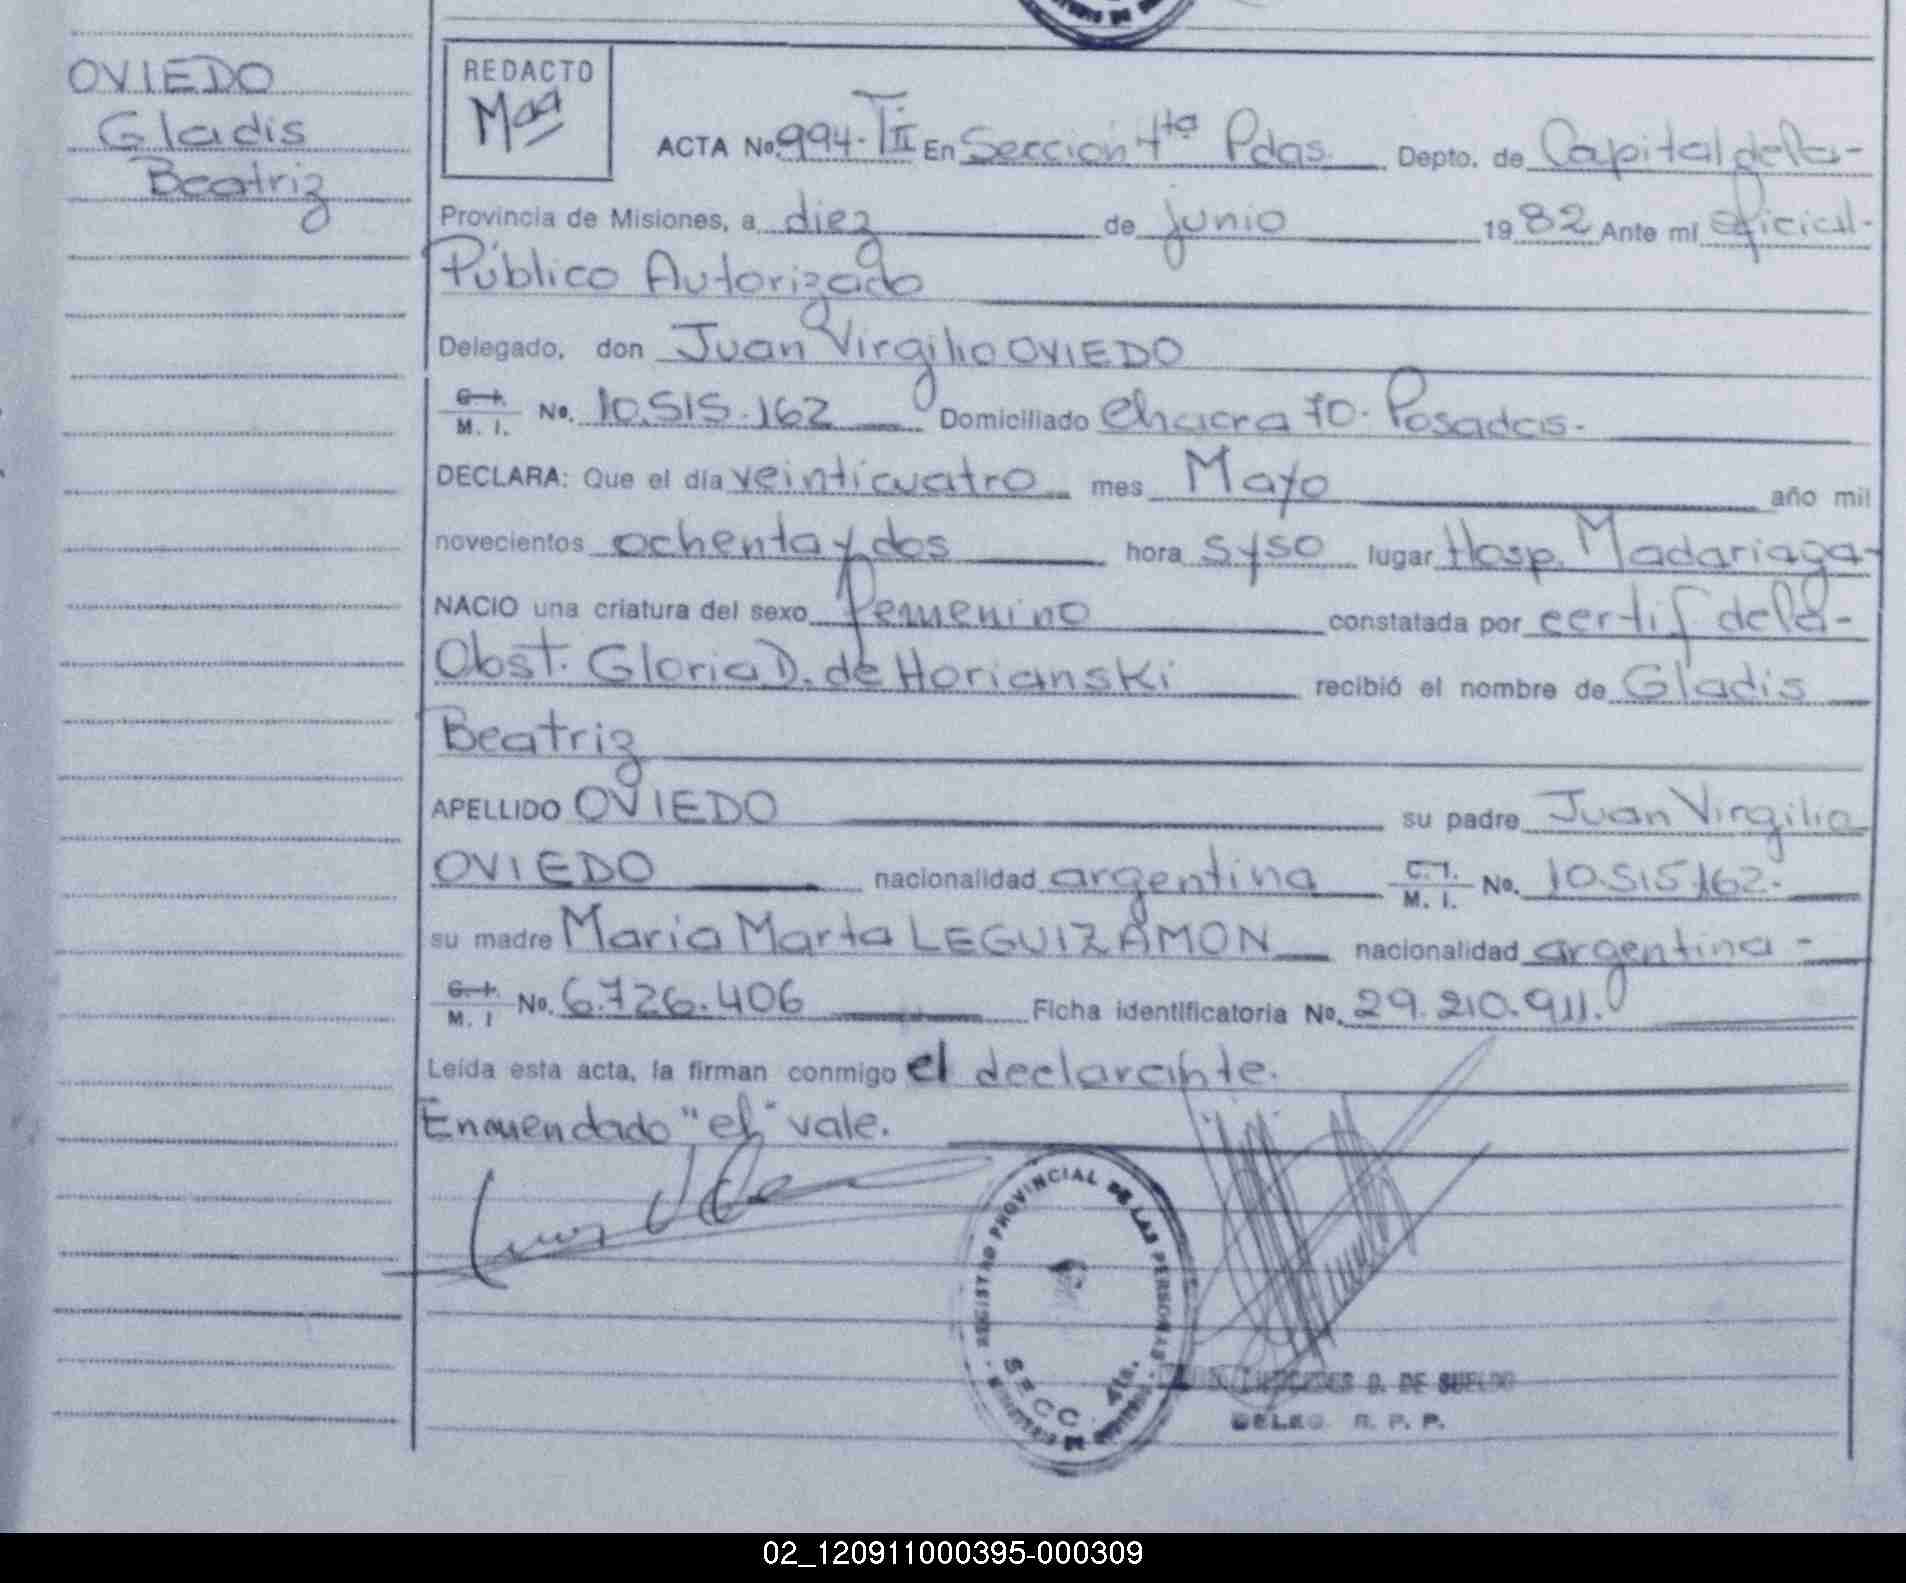 OVIEDO
Gladis
Beatriz
REDACTO
Maa
ACTA No. 994-TII En Sección 4ta Pdas. Depto. de Capital de la-
Provincia de Misiones, a diez de junio 1982 Ante mí oficial-
Público Autorizado
Delegado, don Juan Virgilio OVIEDO
C.I.
M. I. No. 10.515.162 Domiciliado Chacra 70. Posadas.
DECLARA: Que el día veinticuatro mes Mayo año mil
novecientos ochenta y dos hora 5y50 lugar Hosp. Madariaga-
NACIO una criatura del sexo femenino constatada por certif de la-
Obst. Gloria D. de Horianski recibió el nombre de Gladis
Beatriz
APELLIDO OVIEDO su padre Juan Virgilio
OVIEDO nacionalidad argentina C.I. M. I. No. 10.515.162.
su madre Maria Marta LEGUIZAMON nacionalidad argentina -
C.I. M. I No. 6.726.406 Ficha identificatoria No. 29.210.911.
Leída esta acta, la firman conmigo el declarante.
Enmendado "el" vale.
REGISTRO PROVINCIAL DE LAS PERSONAS
SECC. 4ta.
D. DE SUELDO
DELEG. R. P. P.
02_120911000395-000309